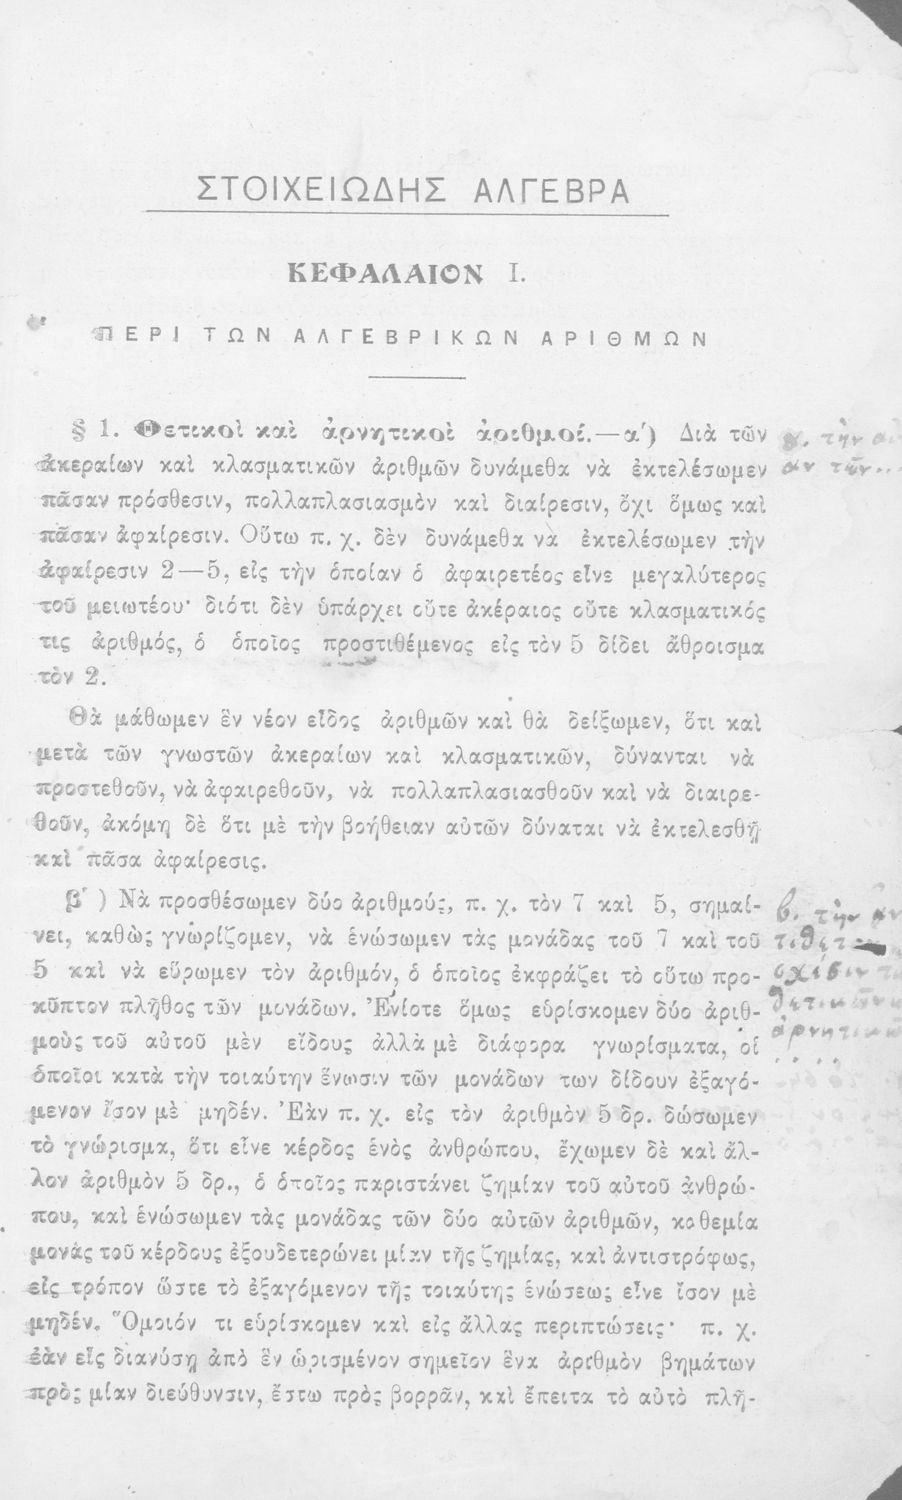 ΣΤΟΙΧΕΙΩΔΗΣ ΑΛΓΕΒΡΑ
ΚΕΦΑΛΑΙΟΝ Ι.
ΠΕΡΙ ΤΩΝ ΑΛΓΕΒΡΙΚΩΝ ΑΡΙΘΜΩΝ
§ 1. Θετικοὶ καὶ ἀρνητικοὶ ἀριθμοί.—α′) Διὰ τῶν
ἀκεραίων καὶ κλασματικῶν ἀριθμῶν δυνάμεθα νὰ ἐκτελέσωμεν
πᾶσαν πρόσθεσιν, πολλαπλασιασμὸν καὶ διαίρεσιν, ὄχι ὅμως καὶ
πᾶσαν ἀφαίρεσιν. Οὕτω π. χ. δὲν δυνάμεθα νὰ ἐκτελέσωμεν τὴν
ἀφαίρεσιν 2—5, εἰς τὴν ὁποίαν ὁ ἀφαιρετέος εἶνε μεγαλύτερος
τοῦ μειωτέου· διότι δὲν ὑπάρχει οὔτε ἀκέραιος οὔτε κλασματικός
τις ἀριθμός, ὁ ὁποῖος προστιθέμενος εἰς τὸν 5 δίδει ἄθροισμα
τὸν 2.
Θὰ μάθωμεν ἓν νέον εἶδος ἀριθμῶν καὶ θὰ δείξωμεν, ὅτι καὶ
μετὰ τῶν γνωστῶν ἀκεραίων καὶ κλασματικῶν, δύνανται νὰ
προστεθοῦν, νὰ ἀφαιρεθοῦν, νὰ πολλαπλασιασθοῦν καὶ νὰ διαιρε-
θοῦν, ἀκόμη δὲ ὅτι μὲ τὴν βοήθειαν αὐτῶν δύναται νὰ ἐκτελεσθῇ
καὶ πᾶσα ἀφαίρεσις.
β′) Νὰ προσθέσωμεν δύο ἀριθμούς, π. χ. τὸν 7 καὶ 5, σημαί-
νει, καθὼς γνωρίζομεν, νὰ ἑνώσωμεν τὰς μονάδας τοῦ 7 καὶ τοῦ
5 καὶ νὰ εὕρωμεν τὸν ἀριθμόν, ὁ ὁποῖος ἐκφράζει τὸ οὕτω προ-
κῦπτον πλῆθος τῶν μονάδων. Ἐνίοτε ὅμως εὑρίσκομεν δύο ἀριθ-
μοὺς τοῦ αὐτοῦ μὲν εἴδους ἀλλὰ μὲ διάφορα γνωρίσματα, οἱ
ὁποῖοι κατὰ τὴν τοιαύτην ἕνωσιν τῶν μονάδων των δίδουν ἐξαγό-
μενον ἴσον μὲ μηδέν. Ἐὰν π. χ. εἰς τὸν ἀριθμὸν 5 δρ. δώσωμεν
τὸ γνώρισμα, ὅτι εἶνε κέρδος ἑνὸς ἀνθρώπου, ἔχωμεν δὲ καὶ ἄλ-
λον ἀριθμὸν 5 δρ., ὁ ὁποῖος παριστάνει ζημίαν τοῦ αὐτοῦ ἀνθρώ-
που, καὶ ἑνώσωμεν τὰς μονάδας τῶν δύο αὐτῶν ἀριθμῶν, καθεμία
μονὰς τοῦ κέρδους ἐξουδετερώνει μίαν τῆς ζημίας, καὶ ἀντιστρόφως,
εἰς τρόπον ὥστε τὸ ἐξαγόμενον τῆς τοιαύτης ἑνώσεως εἶνε ἴσον μὲ
μηδέν. Ὅμοιόν τι εὑρίσκομεν καὶ εἰς ἄλλας περιπτώσεις· π. χ.
ἐὰν εἷς διανύσῃ ἀπὸ ἓν ὡρισμένον σημεῖον ἕνα ἀριθμὸν βημάτων
πρὸς μίαν διεύθυνσιν, ἔστω πρὸς βορρᾶν, καὶ ἔπειτα τὸ αὐτὸ πλῆ-